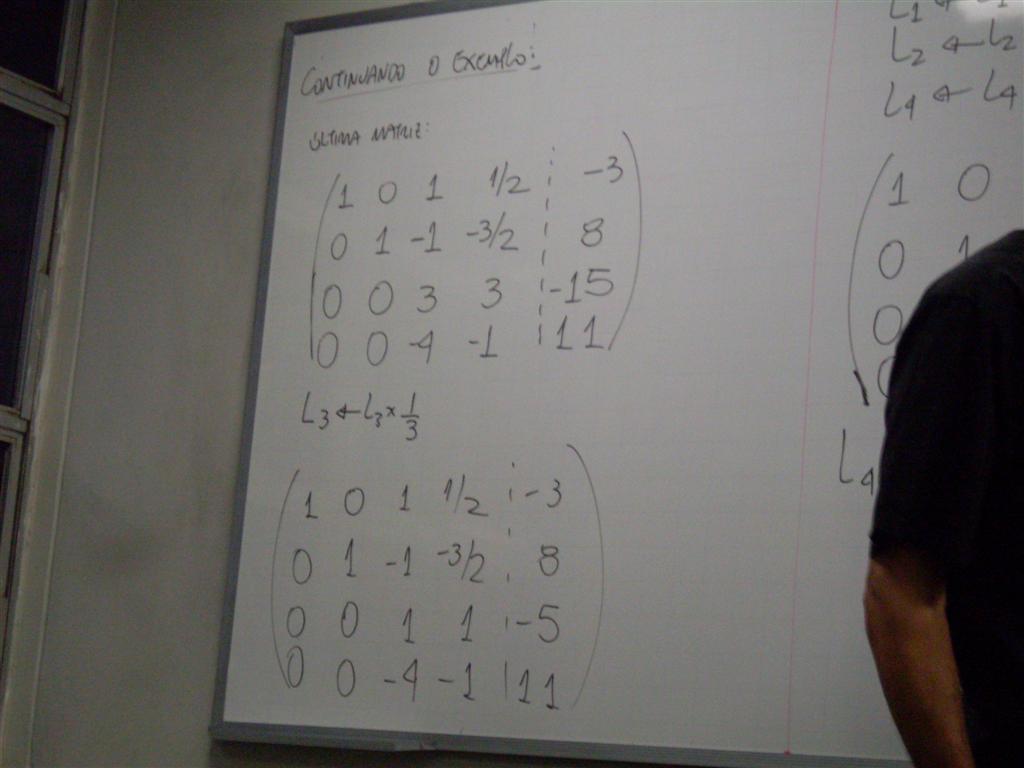 CONTINUANDO O EXEMPLO:
ÚLTIMA MATRIZ:
1 0 1 1/2 ¦ -3
0 1 -1 -3/2 ¦ 8
0 0 3 3 ¦ -15
0 0 -4 -1 ¦ 11
L3 ← L3 × 1/3
1 0 1 1/2 ¦ -3
0 1 -1 -3/2 ¦ 8
0 0 1 1 ¦ -5
0 0 -4 -1 | 11
L2 ← L2
L4 ← L4
1 0
0 1
0
L4